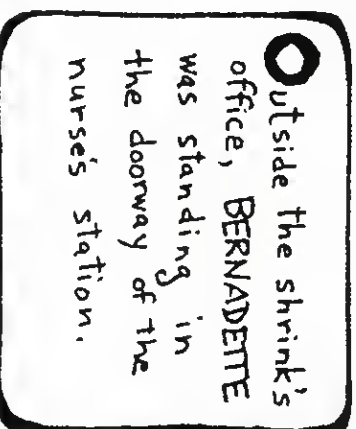 Outside the shrink's
office, BERNADETTE
was standing in
the doorway of the
nurse's station.